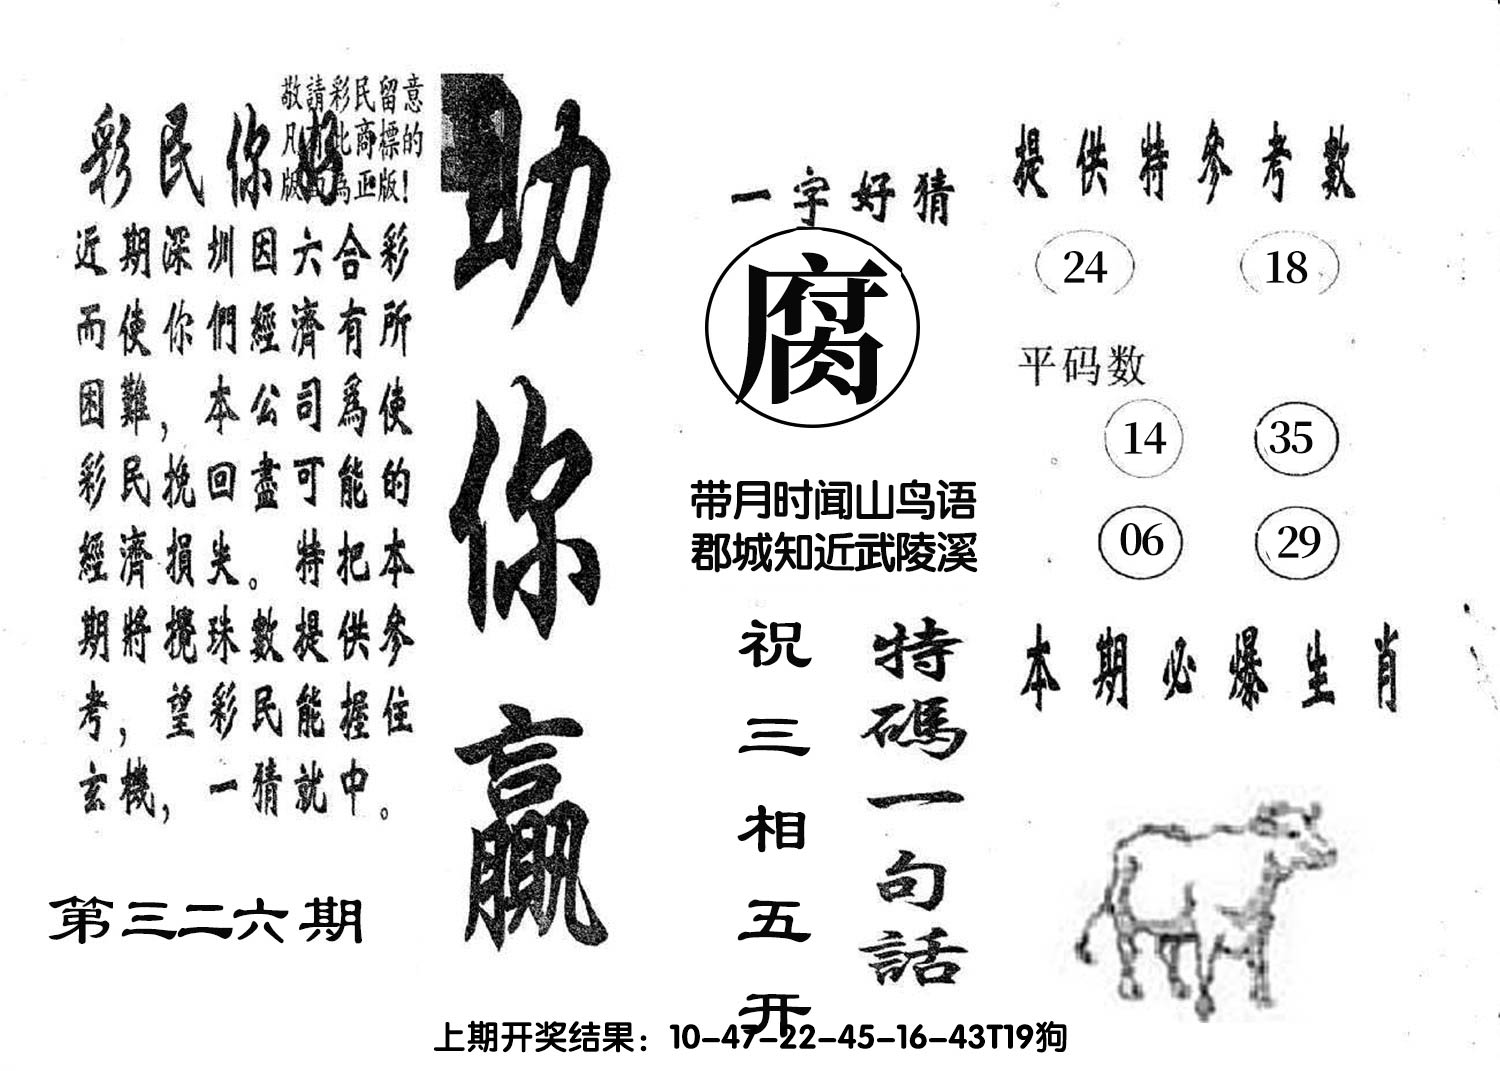 敬請彩民留意
凡有此商標的
版面為正版！
彩民你好
近期深圳因六合彩
而使你們經濟有所
困難，本公司爲使
彩民挽回盡可能的
經濟損失。特把本
期將攪珠數提供參
考，望彩民能握住
玄機，一猜就中。
第三二六期
助你贏
一字好猜
腐
带月时闻山鸟语
郡城知近武陵溪
特碼一句話
祝三相五开
提供特參考數
24 18
平码数
14 35
06 29
本期必爆生肖
上期开奖结果：10-47-22-45-16-43T19狗